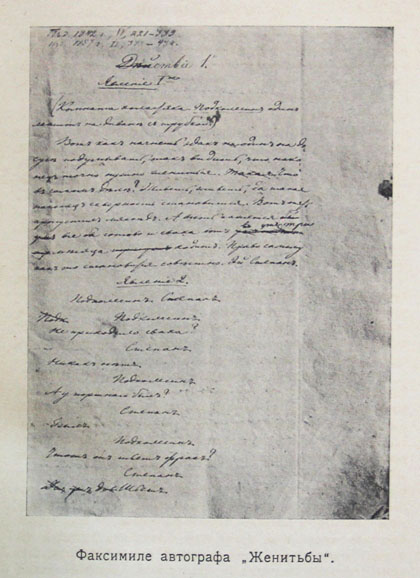 Дѣйствіе 1.
Явленіе 1
(Комната холостяка Подколесинъ одинъ
лежитъ на диванѣ съ трубкой)
Вотъ какъ начнешь эдакъ одинъ на до
сугѣ подумывать, такъ видишь, что нако
нецъ точно нужно жениться. что
въ самомъ дѣлѣ? Живешь, живешь, да такая
наконецъ скверность становится. Вотъ опять
пропустилъ мясоедъ. А ведь кажется
все готово и сваха вотъ ужъ три
месяца ходитъ. Право самому
какъ то становится совестно. Эй Степанъ.
Явленіе 2.
Подколесинъ. Степанъ.
Подколесинъ
Не приходила сваха?
Степанъ.
Никакъ нѣтъ.
Подколесинъ
А у портнаго былъ?
Степанъ.
Былъ.
Подколесинъ
Чтожъ онъ шьетъ фракъ?
Степанъ.
Шьетъ.
Факсимиле автографа „Женитьбы“.